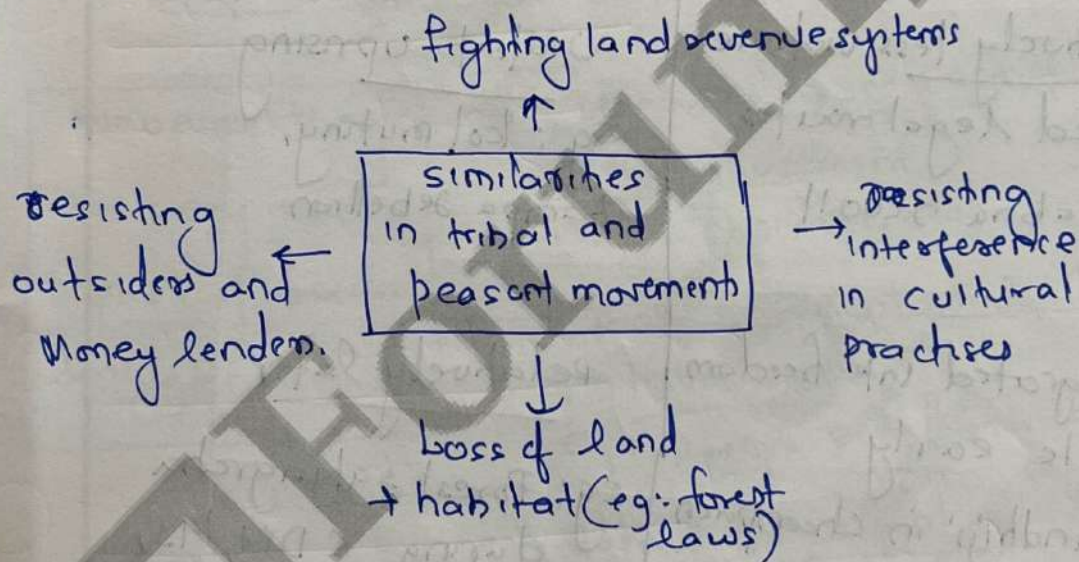 fighting land revenue systems
similarities
in tribal and
peasant movements
resisting
outsiders and
Money lenders.
resisting
interference
in cultural
practises
Loss of land
+ habitat (eg: forest
laws)
Forum